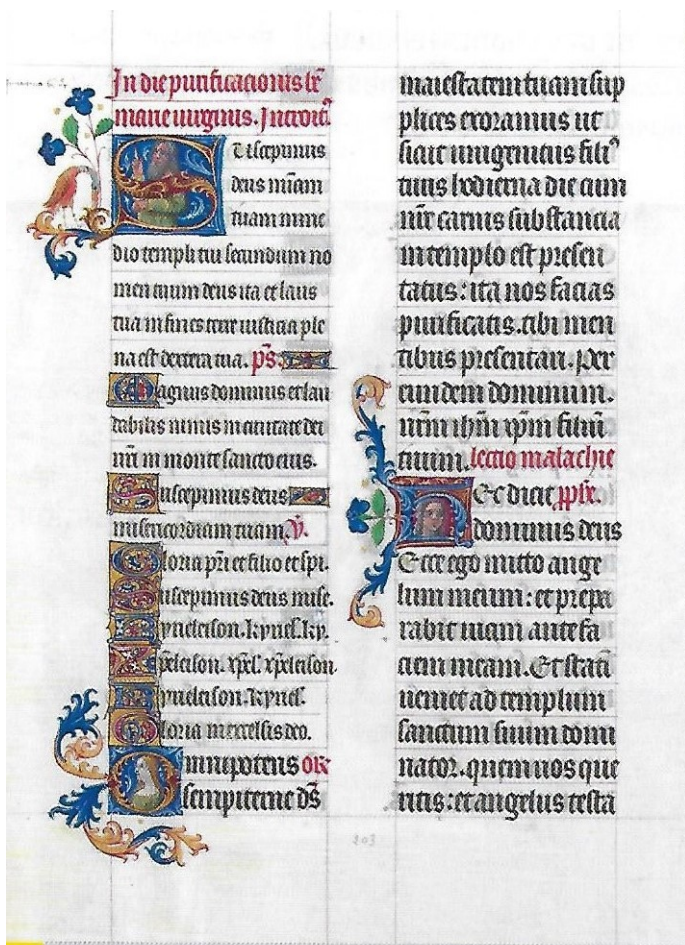 In die purificacionis bē
marie uirginis. Introitꝰ
Suscepimus
deus mīam
tuam in me
dio templi tui secundum no
men tuum deus ita et laus
tua in fines terre iusticia ple
na est dextera tua. p̄s.
Magnus dominus et lau
dabilis nimis in ciuitate dei
nr̄i in monte sancto eius.
Suscepimus deus
misericordiam tuam. V̄.
Gloria pr̄i et filio et spi.
Suscepimus deus mise.
Kyrieleison. kyriel. ky.
Xpeleison. xpel. xpeleison
Kyrieleison. kyriel.
Gloria in excelsis deo.
Omnipotens or̄
sempiterne ds̄
maiestatem tuam sup
plices exoramus ut
sicut unigenitus filiꝰ
tuus hodierna die cum
nr̄e carnis substancia
in templo est presen
tatus: ita nos facias
purificatis. tibi men
tibus presentari. Per
eundem dominum.
nr̄m ihm̄ xp̄m filiū
tuum. lectio malachie
Hec dicit pph̄e.
dominus deus
Ecce ego mitto ange
lum meum: et prepa
rabit uiam ante fa
ciem meam. Et statī
ueniet ad templum
sanctum suum domi
nator. quem uos que
ritis: et angelus testa
203